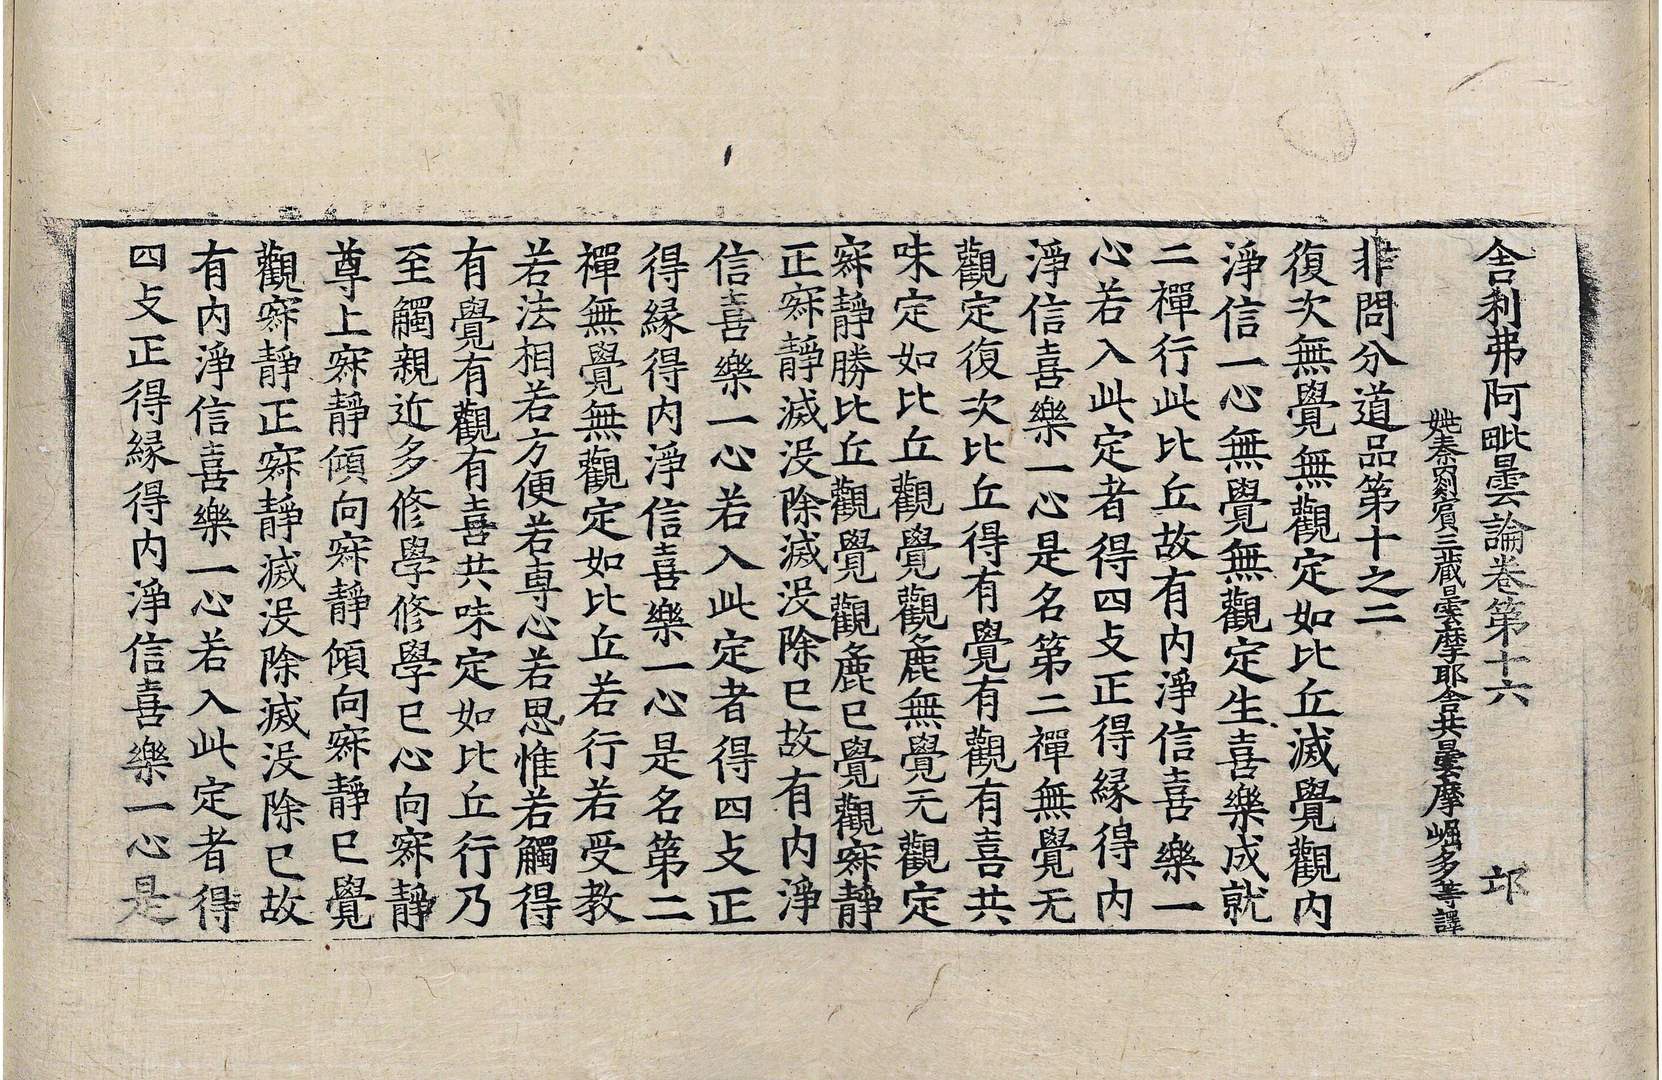 舍利弗阿毗曇論卷第十六　邛
姚秦罽賓三藏曇摩耶舍共曇摩崛多等譯
非問分道品第十之二
復次無覺無觀定如比丘滅覺觀內
淨信一心無覺無觀定生喜樂成就
二禪行此比丘故有內淨信喜樂一
心若入此定者得四攴正得緣得內
淨信喜樂一心是名第二禪無覺无
觀定復次比丘得有覺有觀有喜共
味定如比丘觀覺觀麁無覺无觀定
寂靜勝比丘觀覺觀麁已覺觀寂靜
正寂靜滅沒除滅沒除已故有內淨
信喜樂一心若入此定者得四攴正
得緣得內淨信喜樂一心是名第二
禪無覺無觀定如比丘若行若受教
若法相若方便若專心若思惟若觸得
有覺有觀有喜共味定如比丘行乃
至觸親近多修學修學已心向寂靜
尊上寂靜傾向寂靜傾向寂靜已覺
觀寂靜正寂靜滅沒除滅沒除已故
有內淨信喜樂一心若入此定者得
四攴正得緣得內淨信喜樂一心是